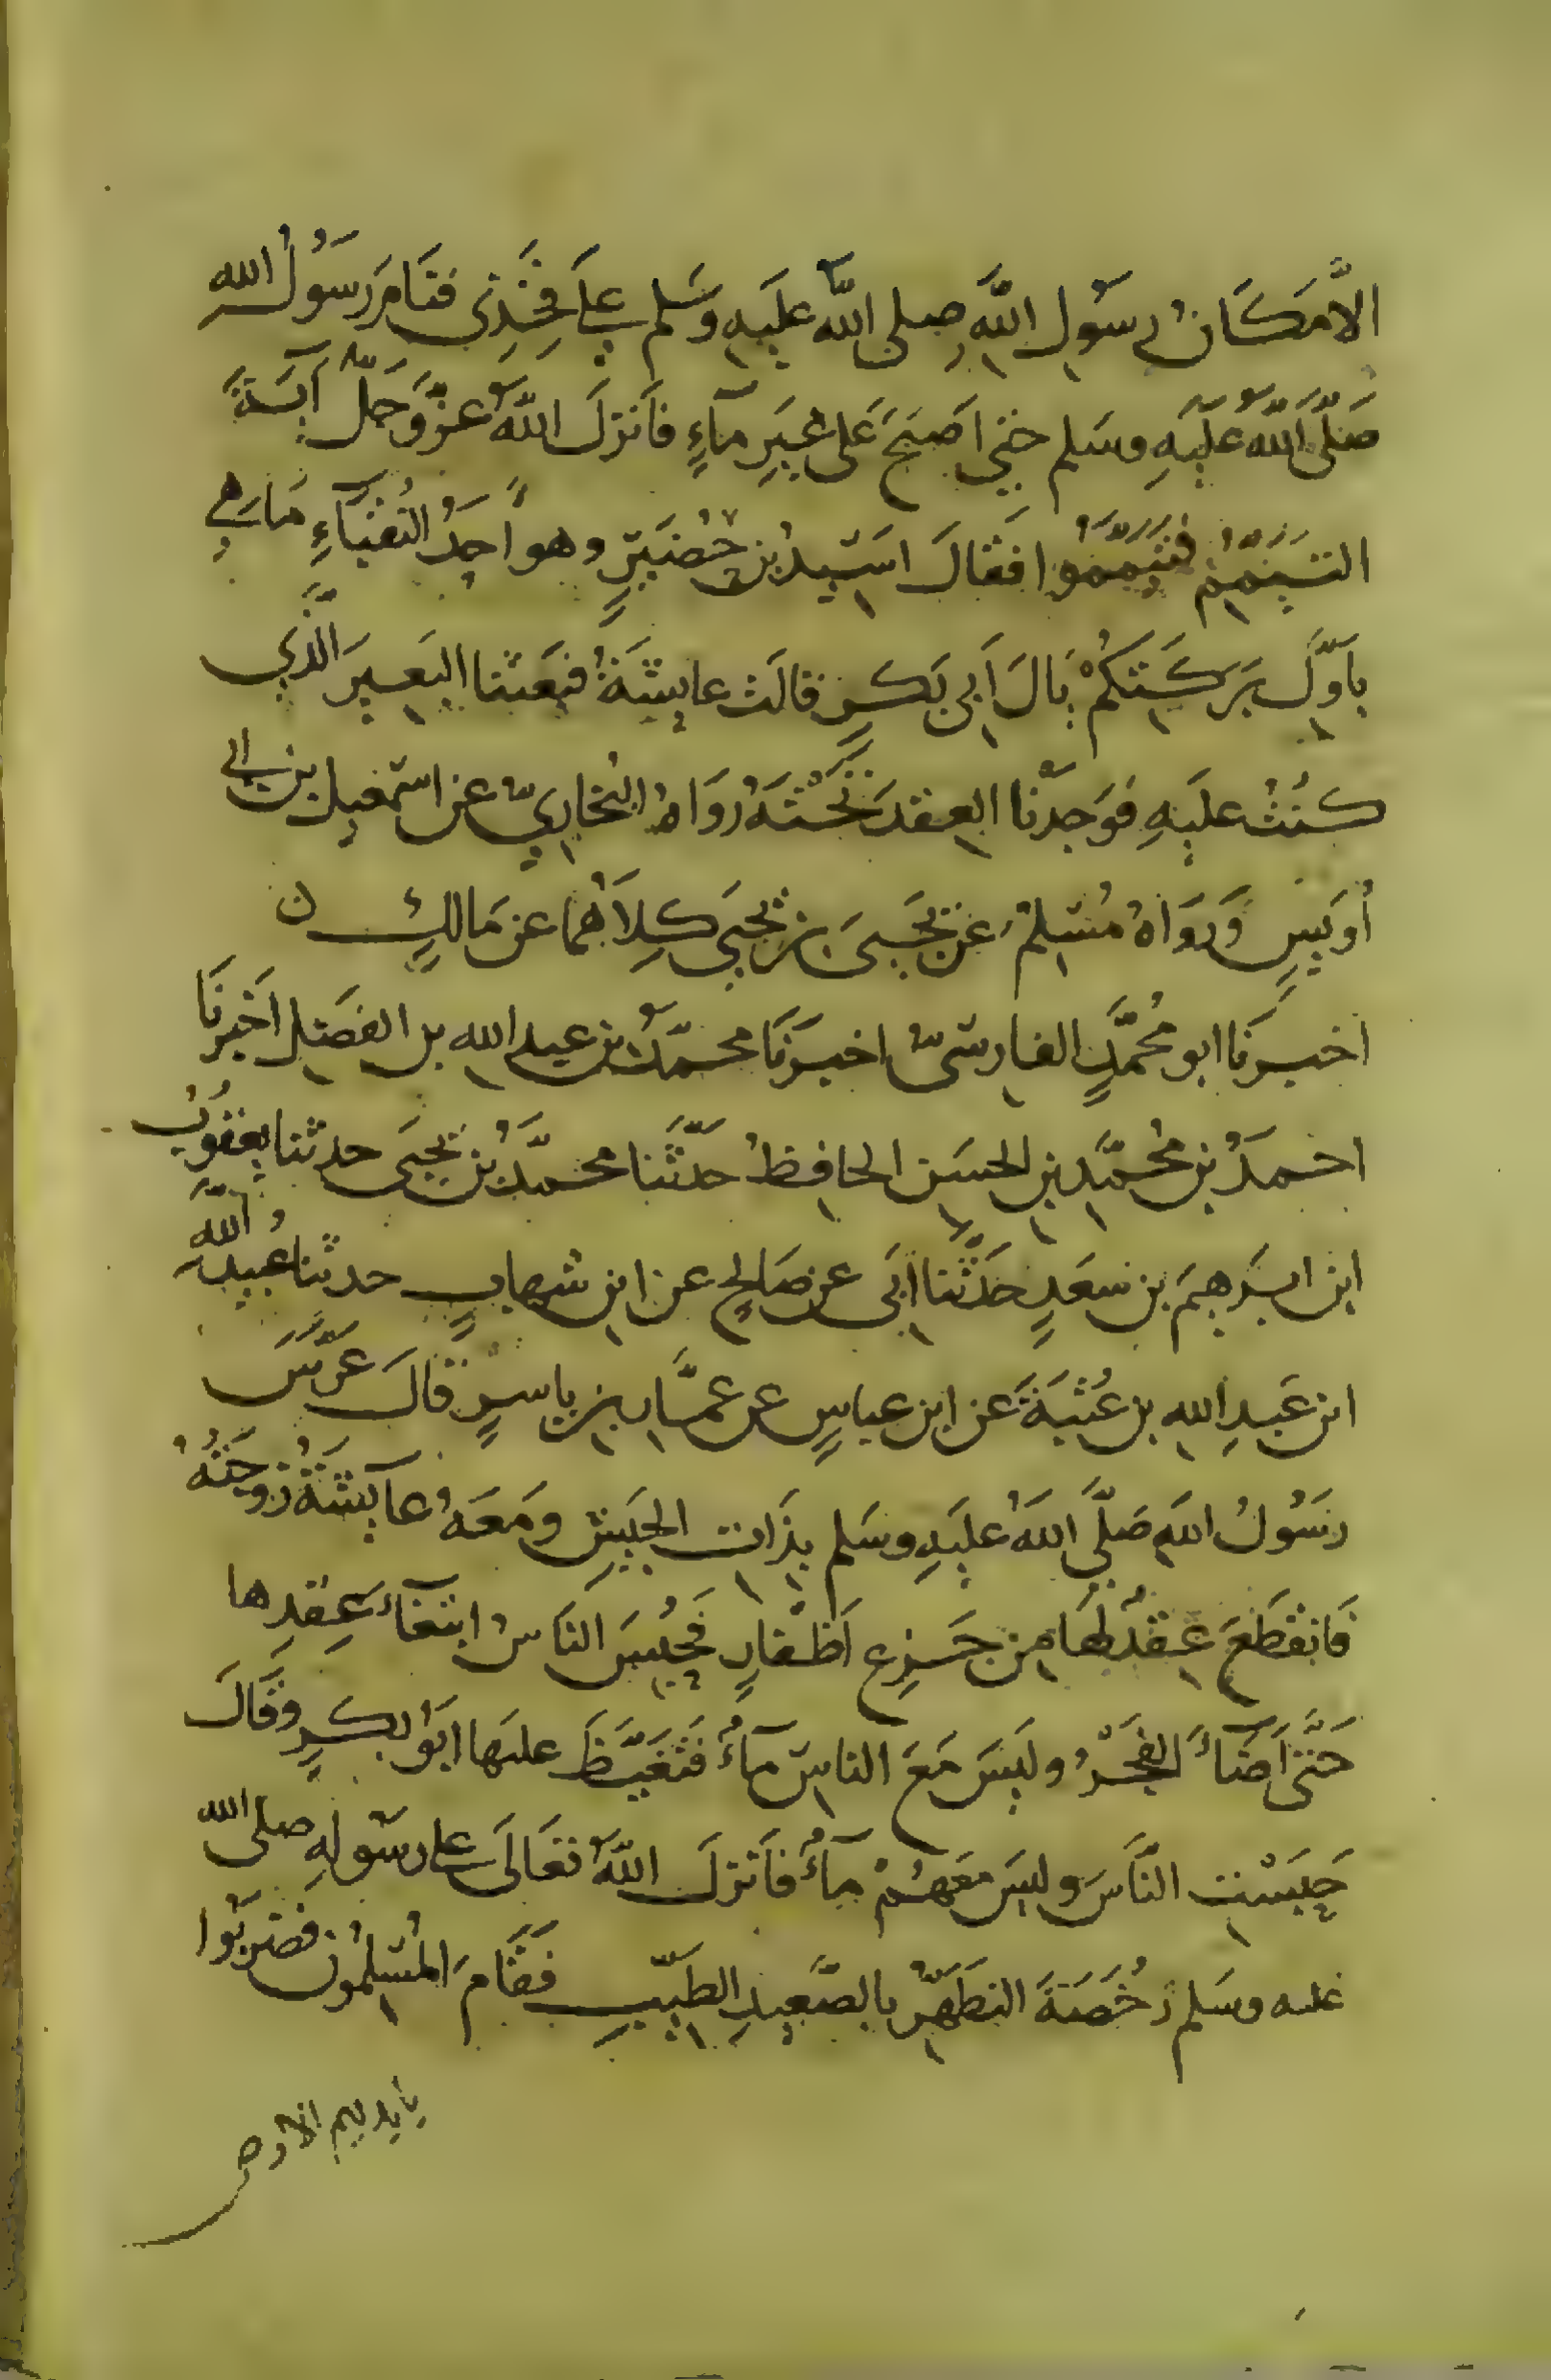 الَّا مَكَانُ رسَوُلِ اللَّهِ صلى اللَّه عليَهِ وسَلم على فخِذِى فنَامَ رَسَوُلُ الله
صَلَّى اللَّهُ عليَهِ وسَلم حتى اصَبحَ عَلى غيَرِ مآءٍ فاَنزلَ اللَّهُ عزَّ وَجلَّ آيَةَ
التيَمّمُ فتيَمَّمَوُا فقاَلَ اسَيدُ بن حُضَيرٍ وهو احَدُ النُقبَآءِ مَا هي
باوَّل بَرَكَتكمُ يَالَ اَبى بَكرٍ قالَت عايشَةُ فبعَثنا البعَيرَ الَّذي
كنُتُ عليَهِ فوَجدَنا العِقدَ تحَتَهُ رَواهُ البُخاريّ عن اسمعيل بن ابي
أوَيسٍ وَرَوَاهُ مُسلمُ عَن يحَيىَ بن يحيَى كِلاَهُما عن مَالكٍ ن
اخبرَنَا ابو مُحمَّدٍ الفارسىّ اخبرَنَا محمّدُ بن عبد الله بن الفضَل اَخبرنَا
احمدُ بن مُحمَّد بن الحسَن الحافِظُ حدَّثَنا محمَّدُ بن يَحيىَ حدثنا يعقوُب
ابن ابرَهِيمَ بن سعَدٍ حدَثَّنا ابَى عن صَالحٍ عن ابن شهابٍ حدثنا عُبيد اللَّه
ابن عَبدِ الله بن عُتبَةَ عن ابن عباسٍ عن عمَّار بن ياسرٍ قالَ عَرَّسَ
رسَوُلُ اللهِ صَلَّى اللهُ عليَهِ وسَلم بذَات الجيَشِ ومَعَهُ عآيشَةُ زَوجَتُهُ
فَانقَطعَ عِقدُ لهَا مِن جَزعِ اَظفارٍ فحُبسَ الناَسُ ابتغآءَ عِقدِها
حَتَّى اَضَآءَ الفجَرُ وليَسَ مَعَ الناسِ مآءُ فتَغيَّظَ عليَها ابَوُ بكرٍ وقَالَ
حبَسَتِ النَّاسَ وليسَ معَهمُ مآءُ فاَنزلَ اللَّهُ تعَالَى على رسَولهِ صلى الله
عليه وسَلم رُخصَةَ التطَهّرُ بالصَّعيدِ الطيّبِ فقَامَ المُسلموُن فضَربوُا
بايديهم الارض